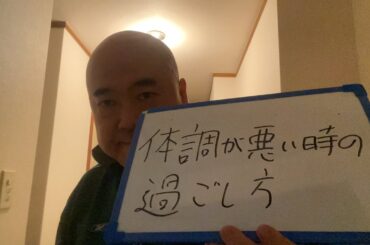 体調が悪い時の
過ごし方